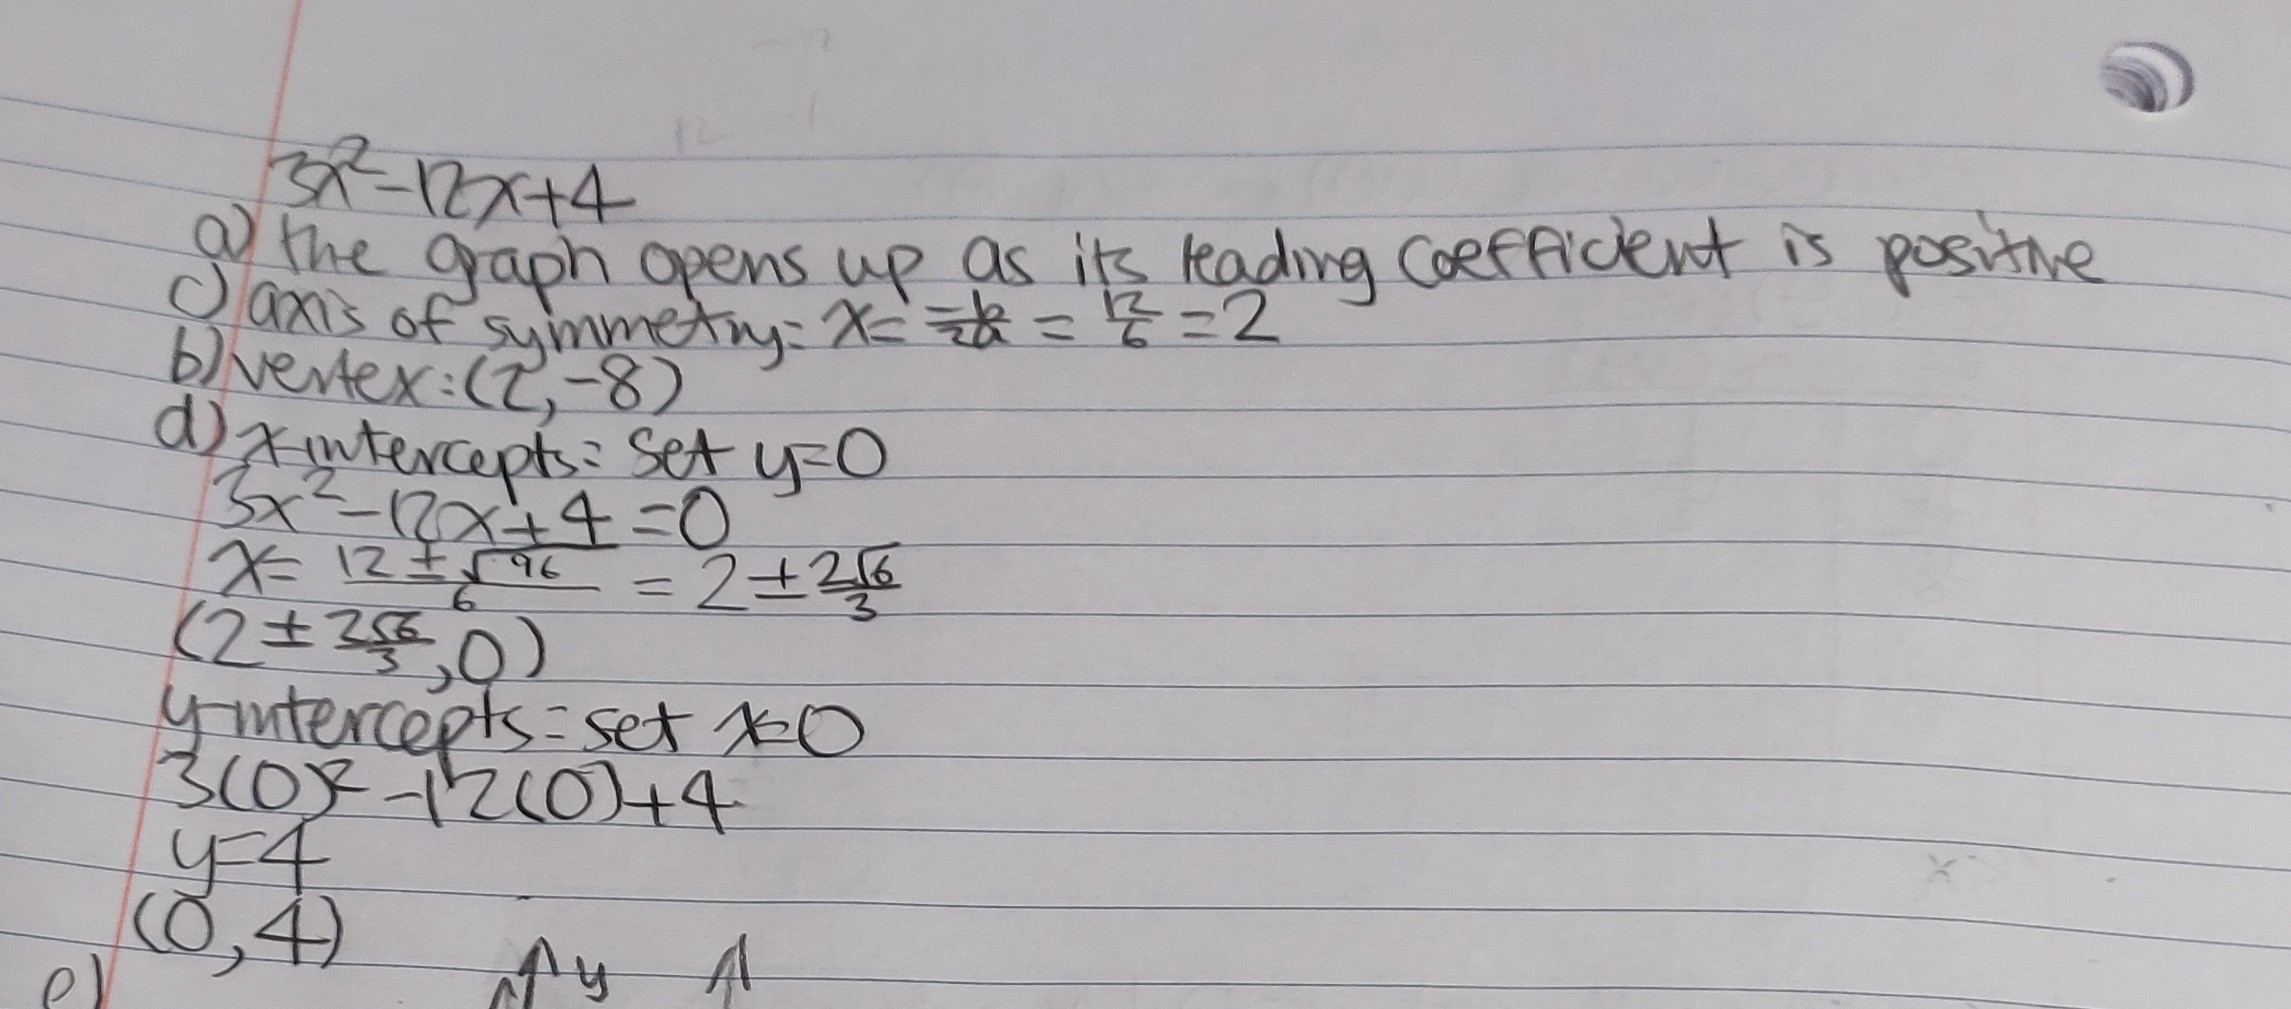 3x²-12x+4
a) the graph opens up as its leading coefficient is positive
c) axis of symmetry: x= -b/2a = 12/6 = 2
b) vertex: (2, -8)
d) x-intercepts: set y=0
3x²-12x+4=0
x= (12±√96)/6 = 2±2√6/3
(2±2√6/3, 0)
y-intercepts: set x=0
3(0)²-12(0)+4
y=4
(0,4)
e) y